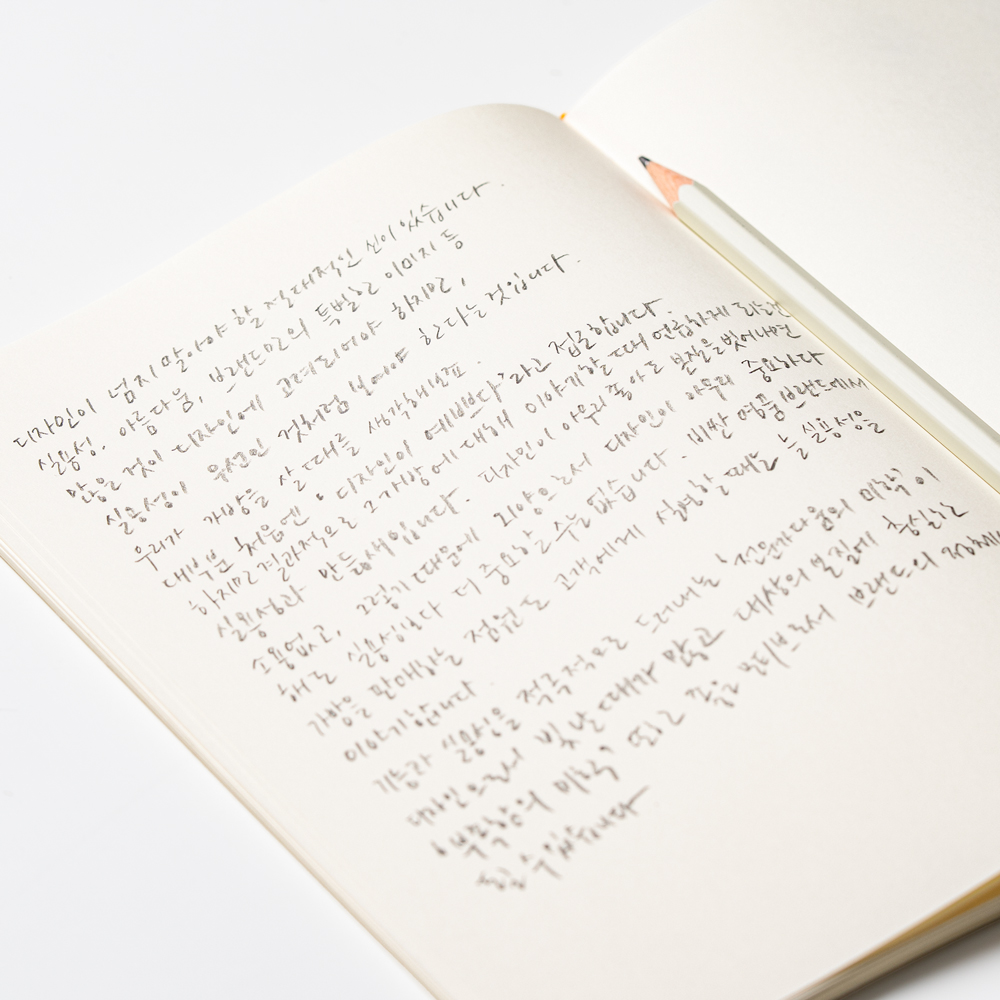 디자인이 넘지 말아야 할 절대적인 선이 있습니다.
실용성. 아름다움, 브랜드만의 특별한 이미지 등
많은 것이 디자인에 고려되어야 하지만,
실용성이 우선인 것처럼 보여야 한다는 것입니다.
우리가 가방을 살 때를 생각해보죠.
대부분 처음엔 "디자인이 예쁘다"라고 접근합니다.
하지만 결과적으로 그 가방에 대해 이야기할 때 연급하게 되는건
실용성과 만듦새입니다. 디자인이 아무리 좋아도 본질을 벗어나면
소용없고, 그렇기 때문에 외양으로서 디자인이 아무리 중요하다
해도 실용성보다 더 중요할 수는 없습니다. 비싼 명품 브랜드에서
가방을 판매하는 점원도 고객에게 설명할 때는 늘 실용성을
이야기합니다.
기능과 실용성을 적극적으로 드러내는 '전원가다움의 미학'이
디자인으로서 빛날 때가 많고 대상의 본질에 충실한
'무목향의 미학' 또한 좋은 모티브로서 브랜드의
수 있습니다